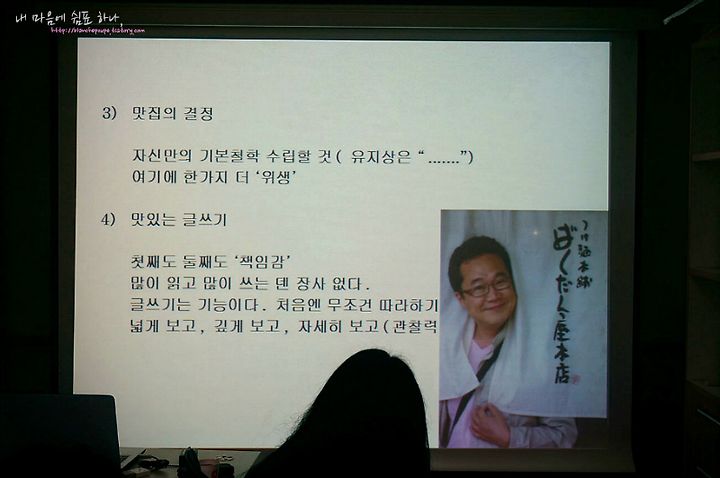 내 마음에 쉼표 하나,
3) 맛집의 결정
자신만의 기본철학 수립할 것( 유지상은 “.......”)
여기에 한가지 더 ‘위생’
4) 맛있는 글쓰기
첫째도 둘째도 ‘책임감’
많이 읽고 많이 쓰는 덴 장사 없다.
글쓰기는 기능이다. 처음엔 무조건 따라하기
넓게 보고, 깊게 보고, 자세히 보고(관찰력
つけ麺本舗
ばくだん屋本店